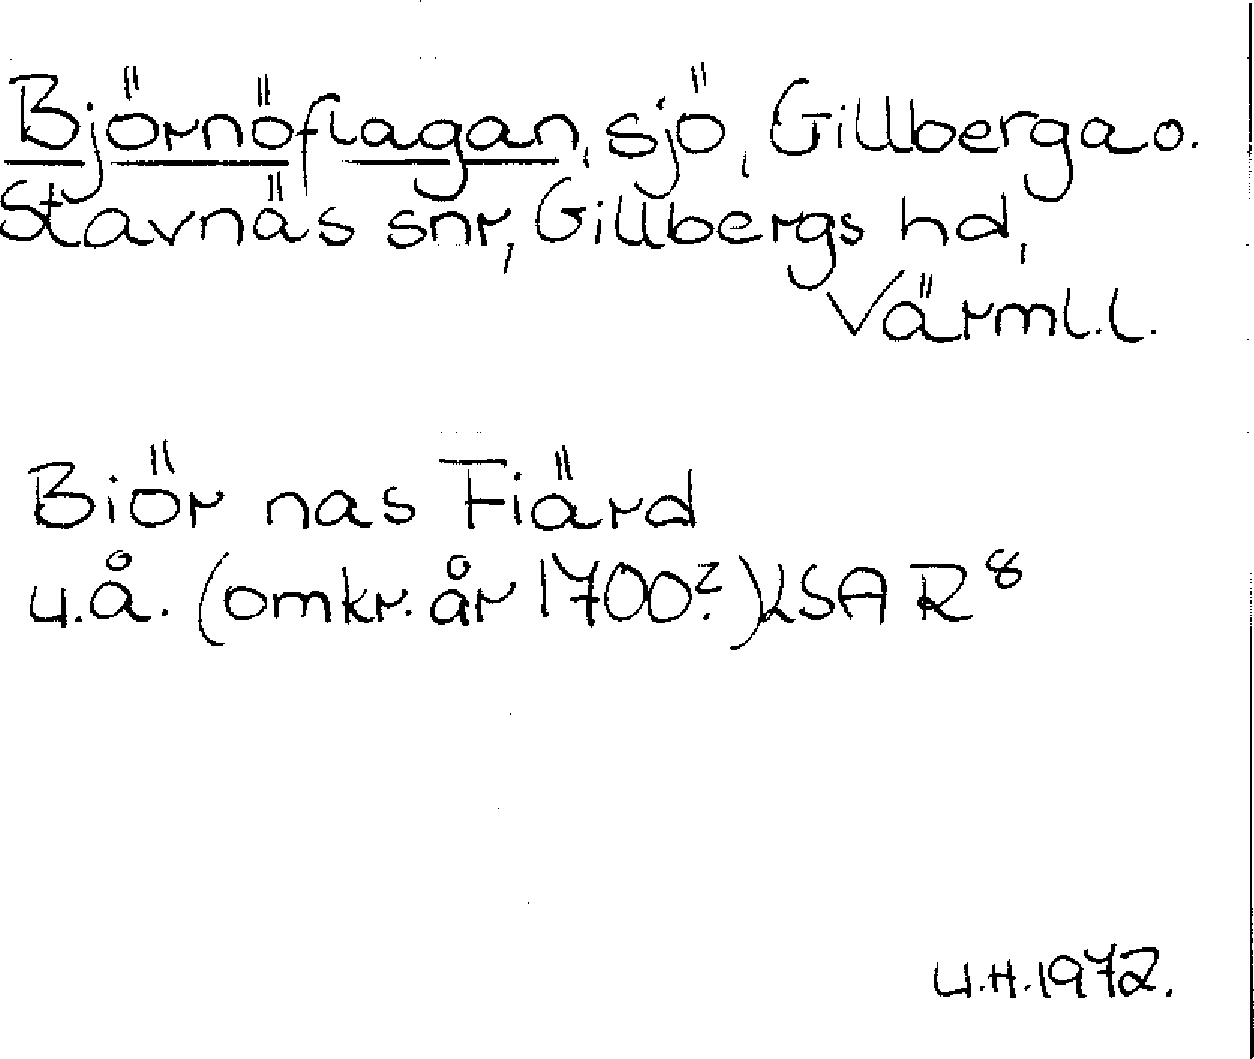 Björnöflagan, sjö, Gillberga o.
Stavnäs snr, Gillbergs hd,
Värml.l.
Biör nas Fiärd
u.å. (omkr. år 1700?) KSA R8
U.H. 1972.